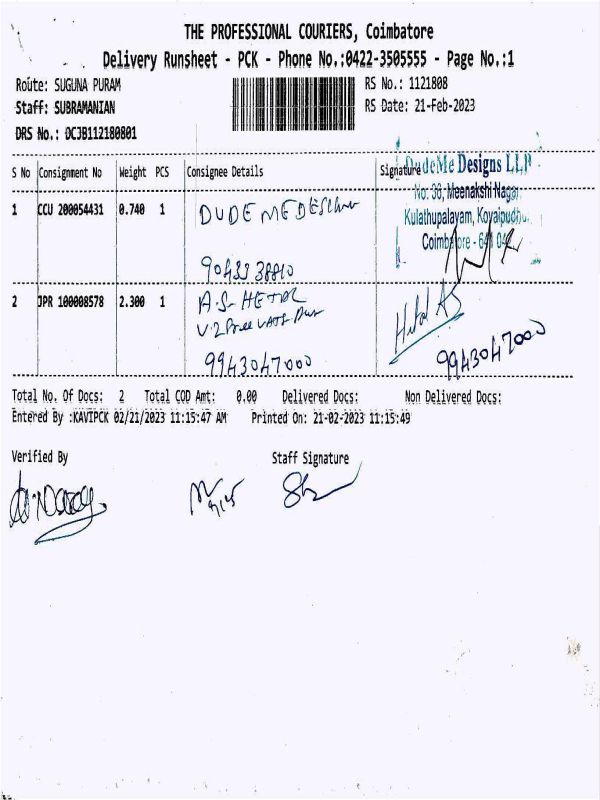 THE PROFESSIONAL COURIERS, Coimbatore
Delivery Runsheet - PCK - Phone No.:0422-3505555 - Page No.:1
Route: SUGUNA PURAM RS No.: 1121808
Staff: SUBRAMANIAN RS Date: 21-Feb-2023
DRS No.: OCJB112180801
S No Consignment No Weight PCS Consignee Details Signature
DudeMe Designs LLP
No: 38, Meenakshi Nagar,
Kulathupalayam, Kovaipudhur,
Coimbatore - 641 042
1 CCU 200054431 0.740 1 DUDE ME
2 JPR 100008578 2.300 1 A.S- HETAL
Hetal AS
9943047000 9943047000
Total No. Of Docs: 2 Total COD Amt: 0.00 Delivered Docs: Non Delivered Docs:
Entered By :KAVIPCK 02/21/2023 11:15:47 AM Printed On: 21-02-2023 11:15:49
Verified By Staff Signature